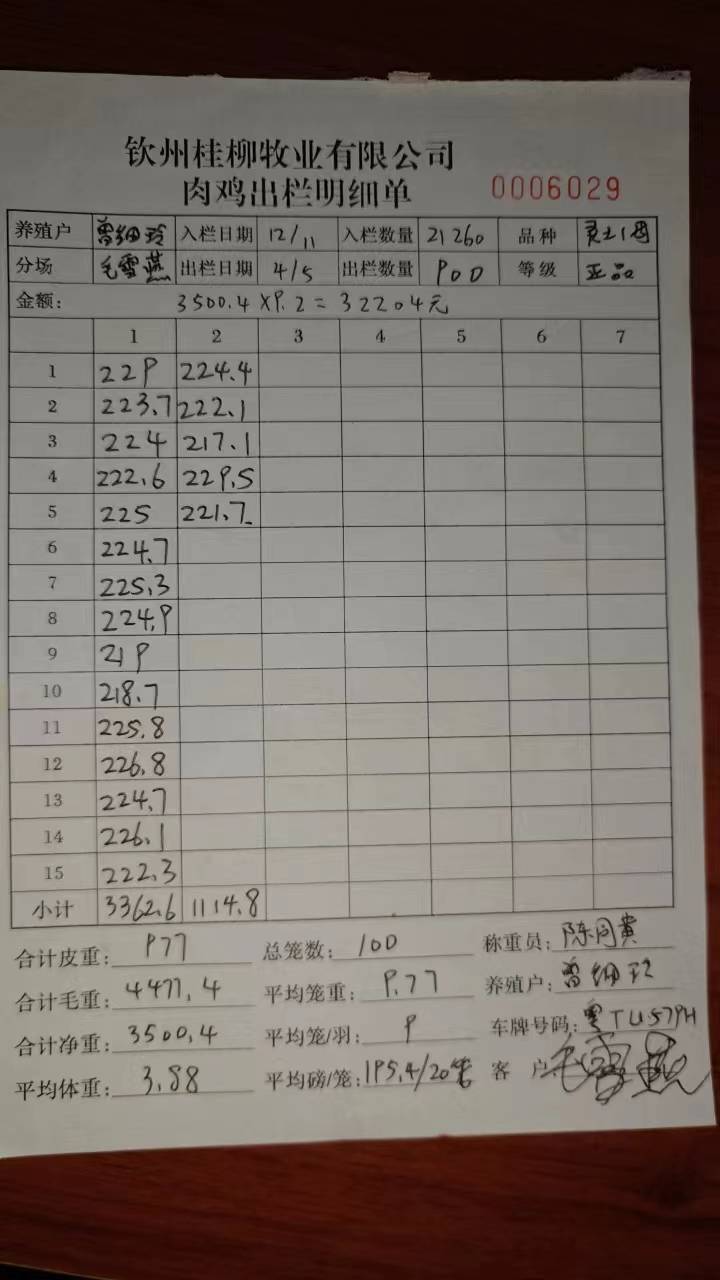 钦州桂柳牧业有限公司
肉鸡出栏明细单 0006029
养殖户 曾细玲 入栏日期 12/11 入栏数量 21260 品种
分场 毛雪燕 出栏日期 4/5 出栏数量 900 等级 正品
金额: 3500.4×9.2=32204元
1 2 3 4 5 6 7
1 229 224.4
2 223.7 222.1
3 224 217.1
4 222.6 229.5
5 225 221.7
6 224.7
7 225.3
8 224.9
9 219
10 218.7
11 225.8
12 226.8
13 224.7
14 226.1
15 222.3
小计 3362.6 1114.8
合计皮重: 977 总笼数: 100 称重员: 陈同贵
合计毛重: 4477.4 平均笼重: 9.77 养殖户: 曾细玲
合计净重: 3500.4 平均笼/羽: 9 车牌号码: 粤TU579H
平均体重: 3.88 平均磅/笼: 195.4/20笼 客户: 毛雪燕